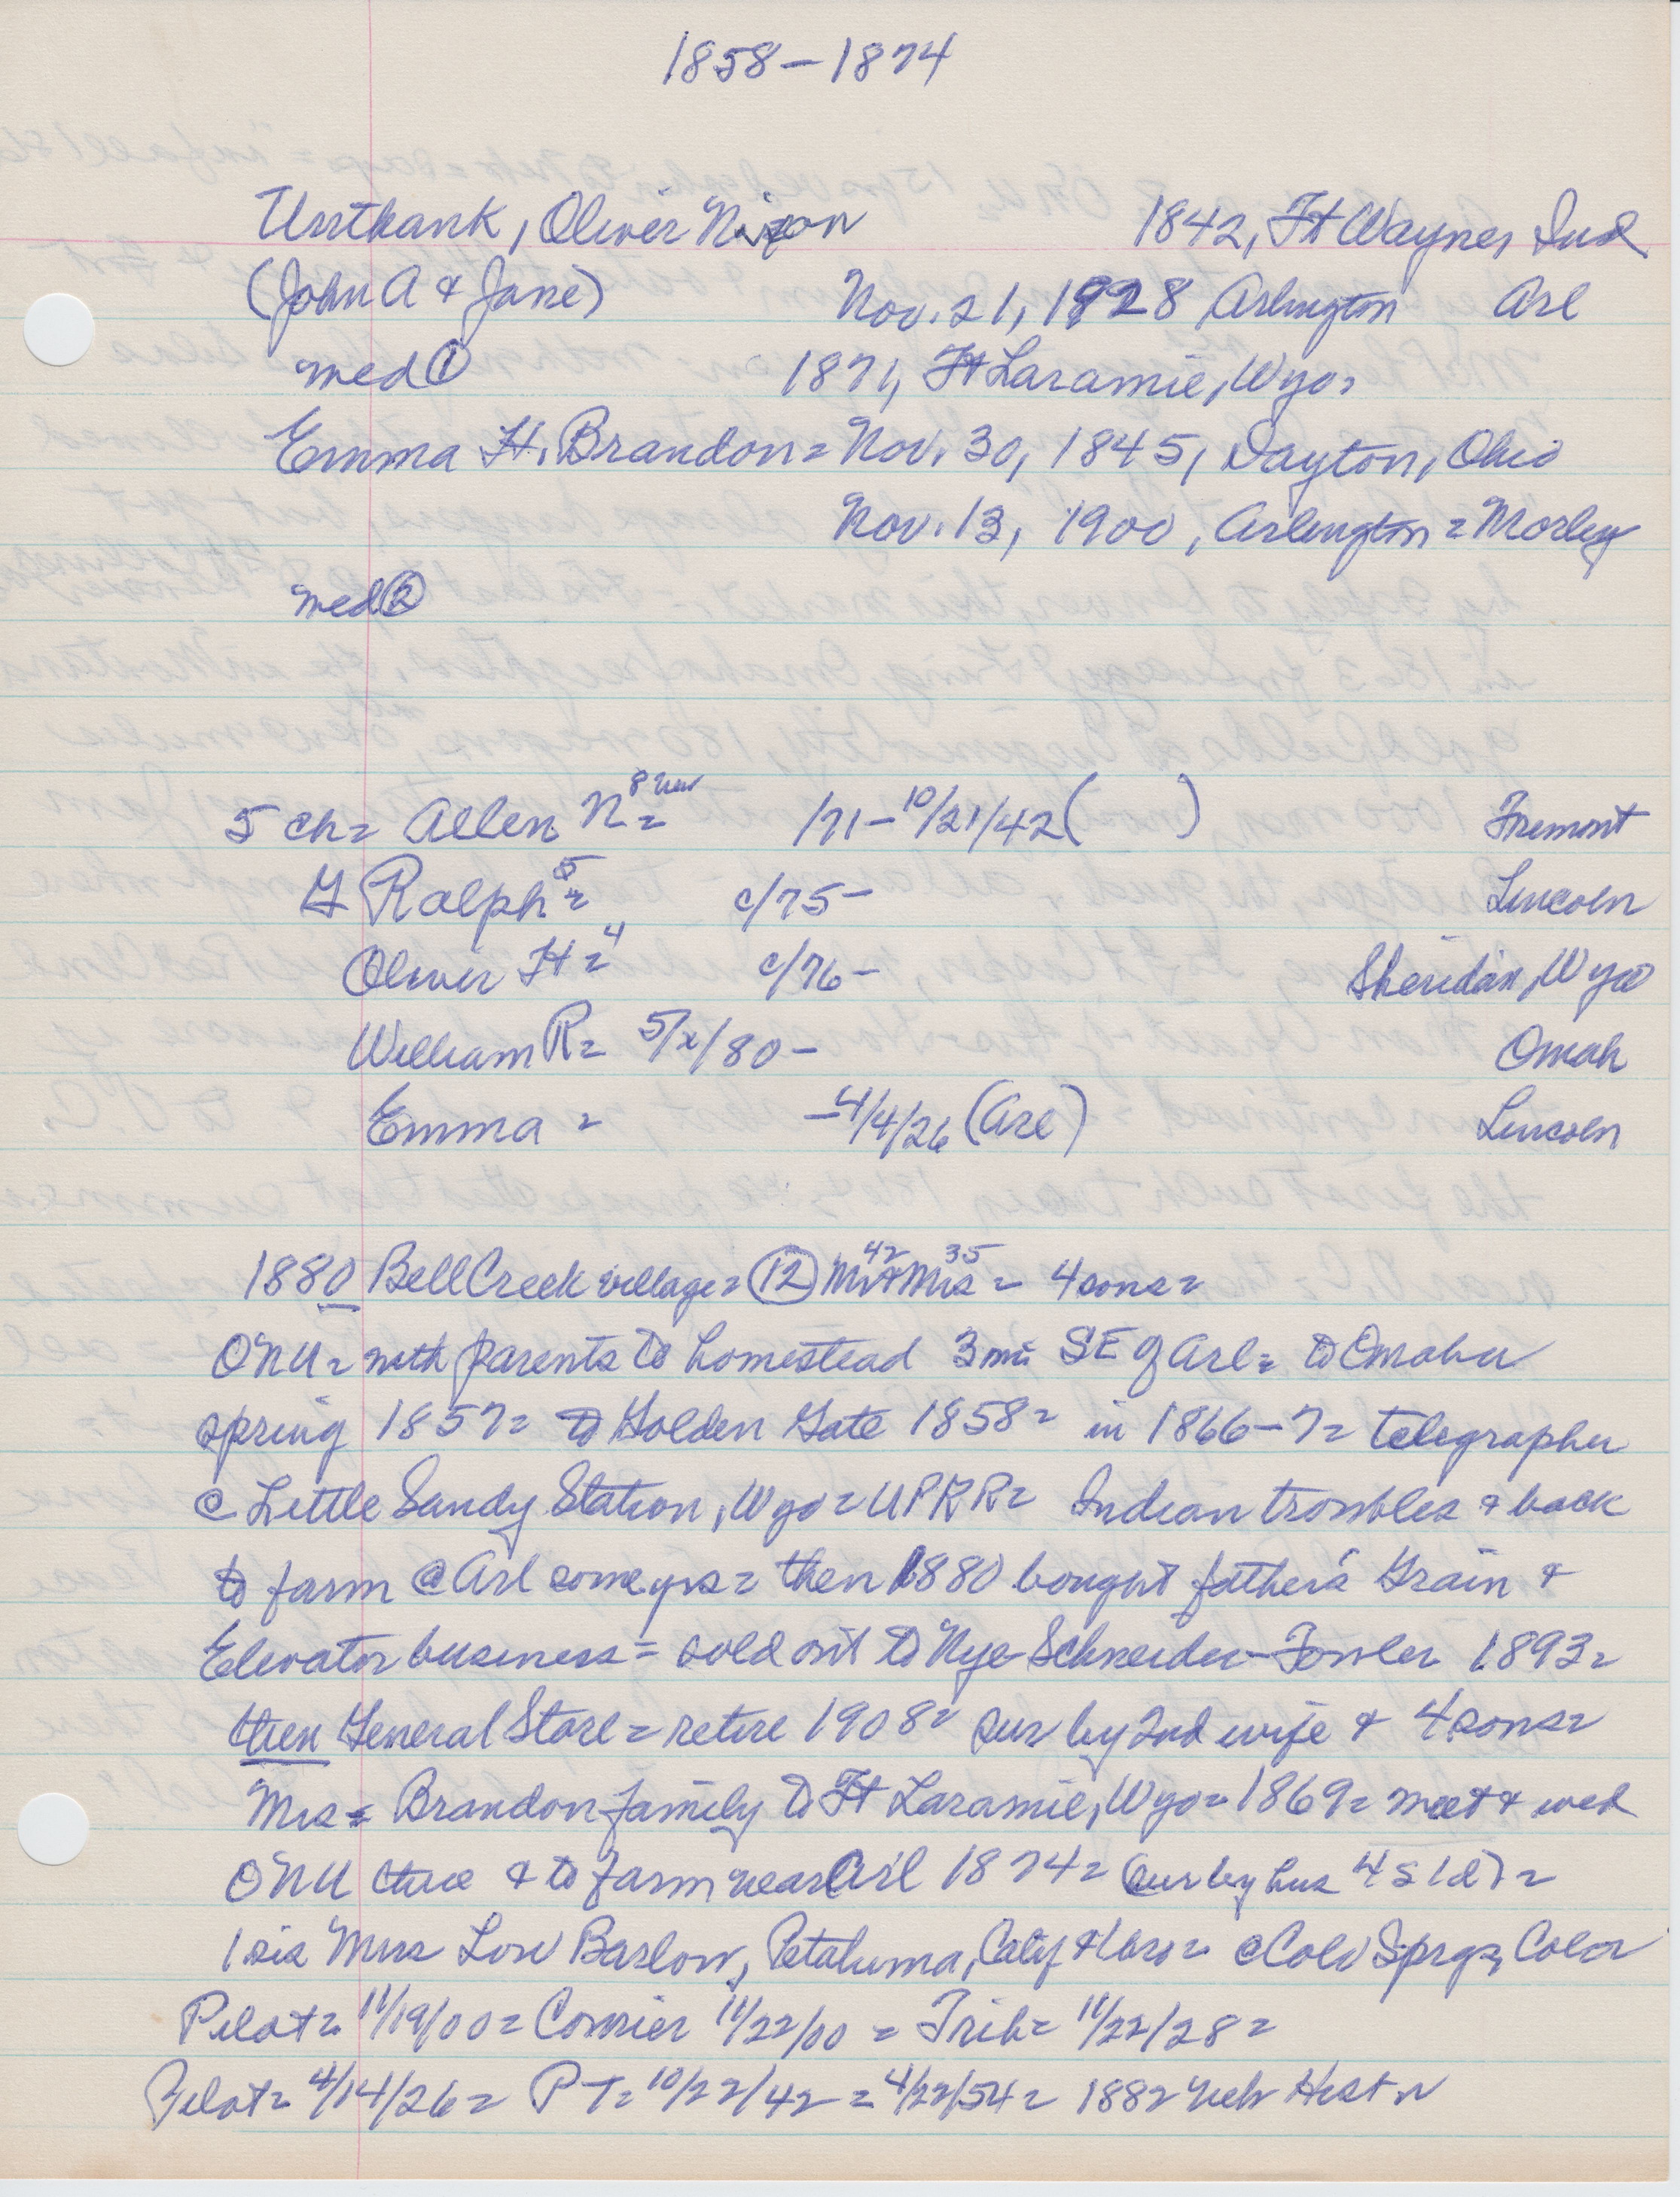 1858-1874
Unthank, Oliver Nixon 1842, Ft Wayne, Ind
(John A & Jane) Nov. 21, 1928 Arlington Arl
med ① 1871, Ft Laramie, Wyo.
Emma H. Brandon = Nov. 30, 1845, Dayton, Ohio
Nov. 13, 1900, Arlington = Morley
med ②
5 ch = Allen N = 8 /71 - 10/21/42 ( ) Fremont
G Ralph = 5 c/75 - Lincoln
Oliver H = 4 c/76 - Sheridan, Wyo
William R = 5/x/80 - Omah
Emma = - 4/4/26 (Arl) Lincoln
1880 Bell Creek village = ⑫ Mr 42 & Mrs 35 = 4 sons =
ONU = with parents to homestead 3 mi SE of Arl = to Omaha
spring 1857 = to Golden Gate 1858 = in 1866-7 = telegrapher
@ Little Sandy Station, Wyo = UPRR = Indian troubles & back
to farm @ Arl some yrs = then 1880 bought father's Grain &
Elevator business = sold out to Nye-Schneider-Fowler 1893 =
then General Store = retire 1908 = sur by 2nd wife & 4 sons =
Mrs = Brandon family to Ft Laramie, Wyo = 1869 = meet & wed
ONU & to farm near Arl 1874 = (sur by hus 4 s 1 d) =
1 sis Mrs Low Barlow, Petaluma, Calif & 1 bro = @ Colo Sprgs, Color
Pilot = 11/19/00 = Courier 11/22/00 = Trib = 11/22/28 =
Pilot = 4/14/26 = PT = 10/22/42 = 4/22/54 = 1882 Neb Hist